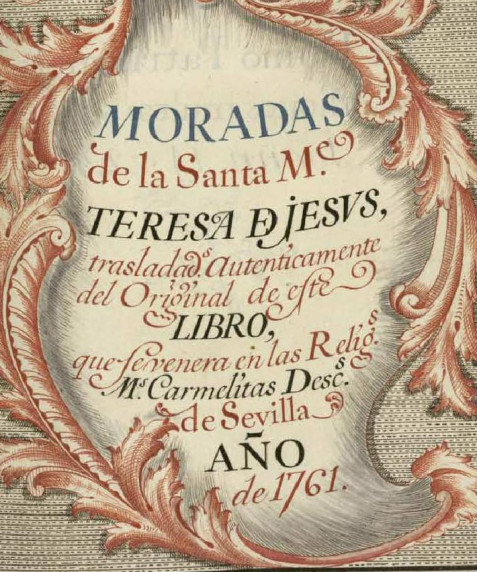 MORADAS
de la Santa M.ᵉ
TERESA Ð JESVS,
trasladad.ˢ Autenticamente
del Original de eſte
LIBRO,
que ſe venera en las Relig.ˢ
M.ˢ Carmelitas Desc.ˢ
de Sevilla
AÑO
de 1761.